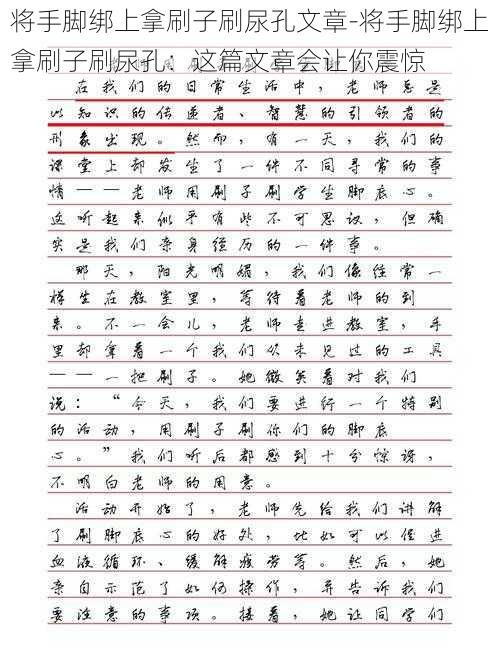 将手脚绑上拿刷子刷尿孔文章-将手脚绑上
拿刷子刷尿孔：这篇文章会让你震惊
在我们的日常生活中，老师总是
以知识的传递者、智慧的引领者的
形象出现。然而，有一天，我们的
课堂上却发生了一件不同寻常的事
情——老师用刷子刷学生脚底心。
这听起来似乎有些不可思议，但确
实是我们亲身经历的一件事。
那天，阳光明媚，我们像往常一
样坐在教室里，等待着老师的到
来。不一会儿，老师走进教室，手
里却拿着一个我们从未见过的工具
——一把刷子。她微笑着对我们
说：“今天，我们要进行一个特别
的活动，用刷子刷你们的脚底
心。”我们听后都感到十分惊讶，
不明白老师的用意。
活动开始了，老师先给我们讲解
了刷脚底心的好处，比如可以促进
血液循环、缓解疲劳等。然后，她
亲自示范了如何操作，并告诉我们
要注意的事项。接着，她让同学们